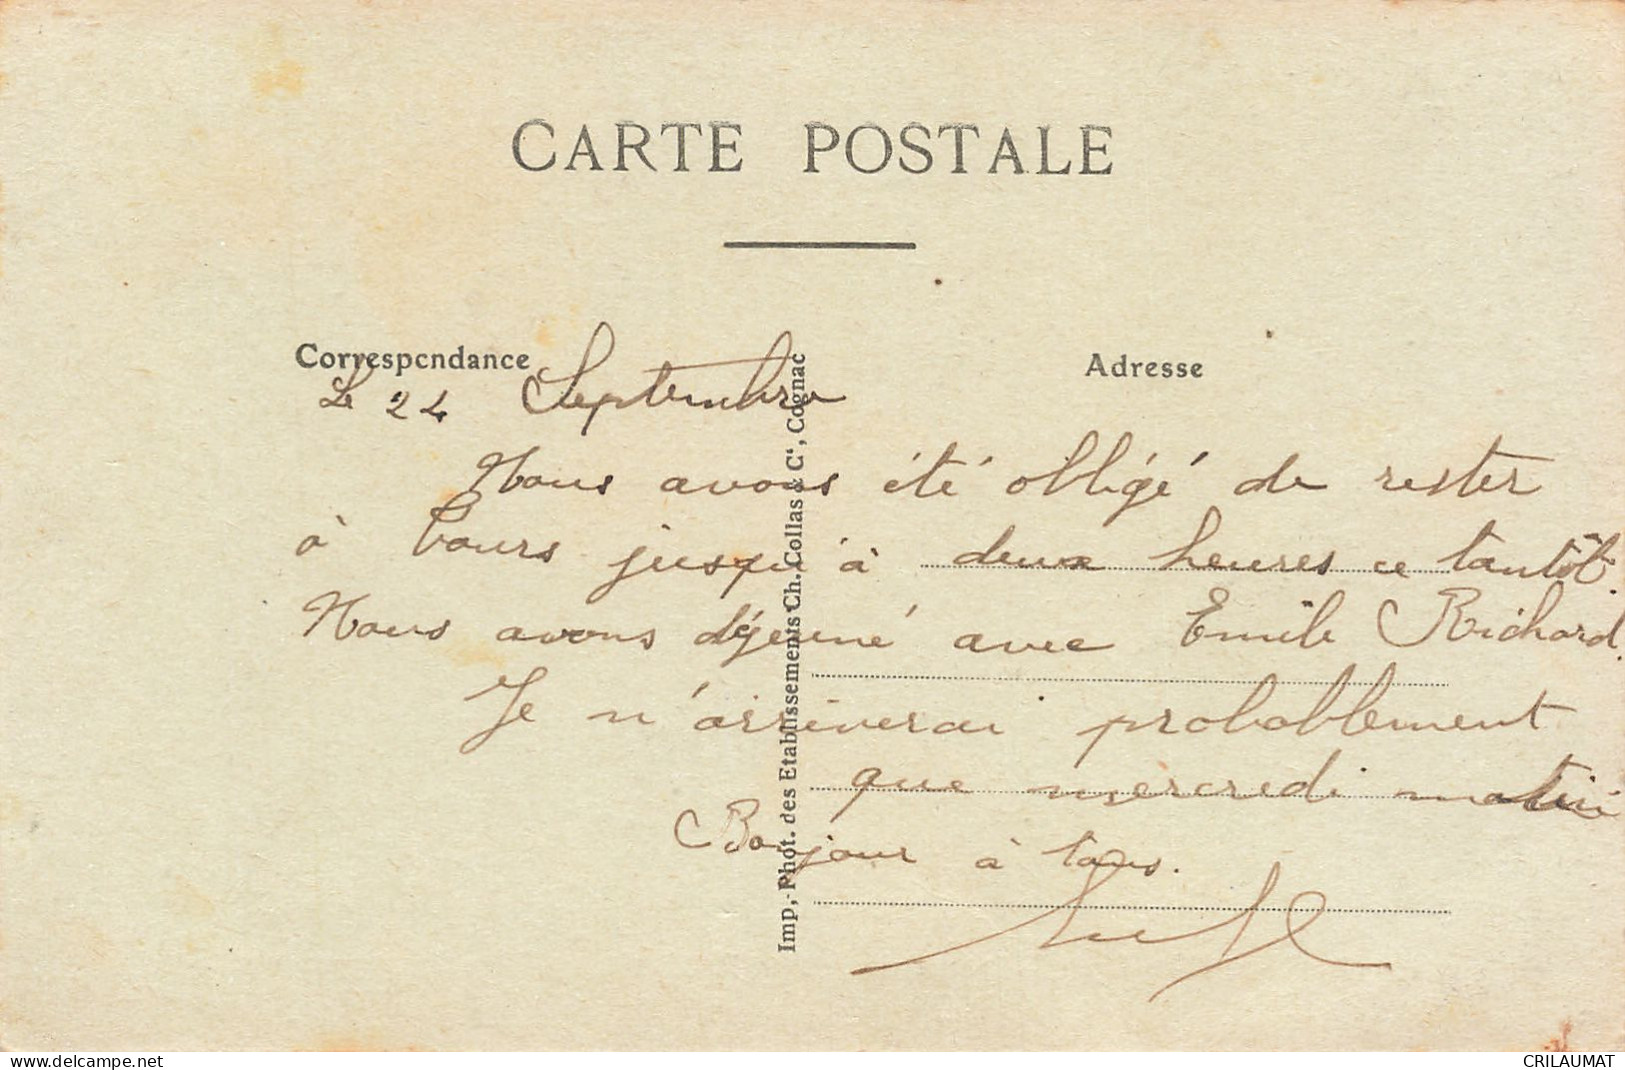 CARTE POSTALE
Correspondance
Adresse
Le 24 Septembre
Nous avons été obligé de rester
à Tours jusqu'à deux heures ce tantôt.
Nous avons déjeuné avec Emile Richard.
Je n'arriverai probablement
que mercredi matin
Bonjour à tous.
Imp,-Phot. des Etablissements Ch. Collas & Cie, Cognac
www.delcampe.net
CRILAUMAT